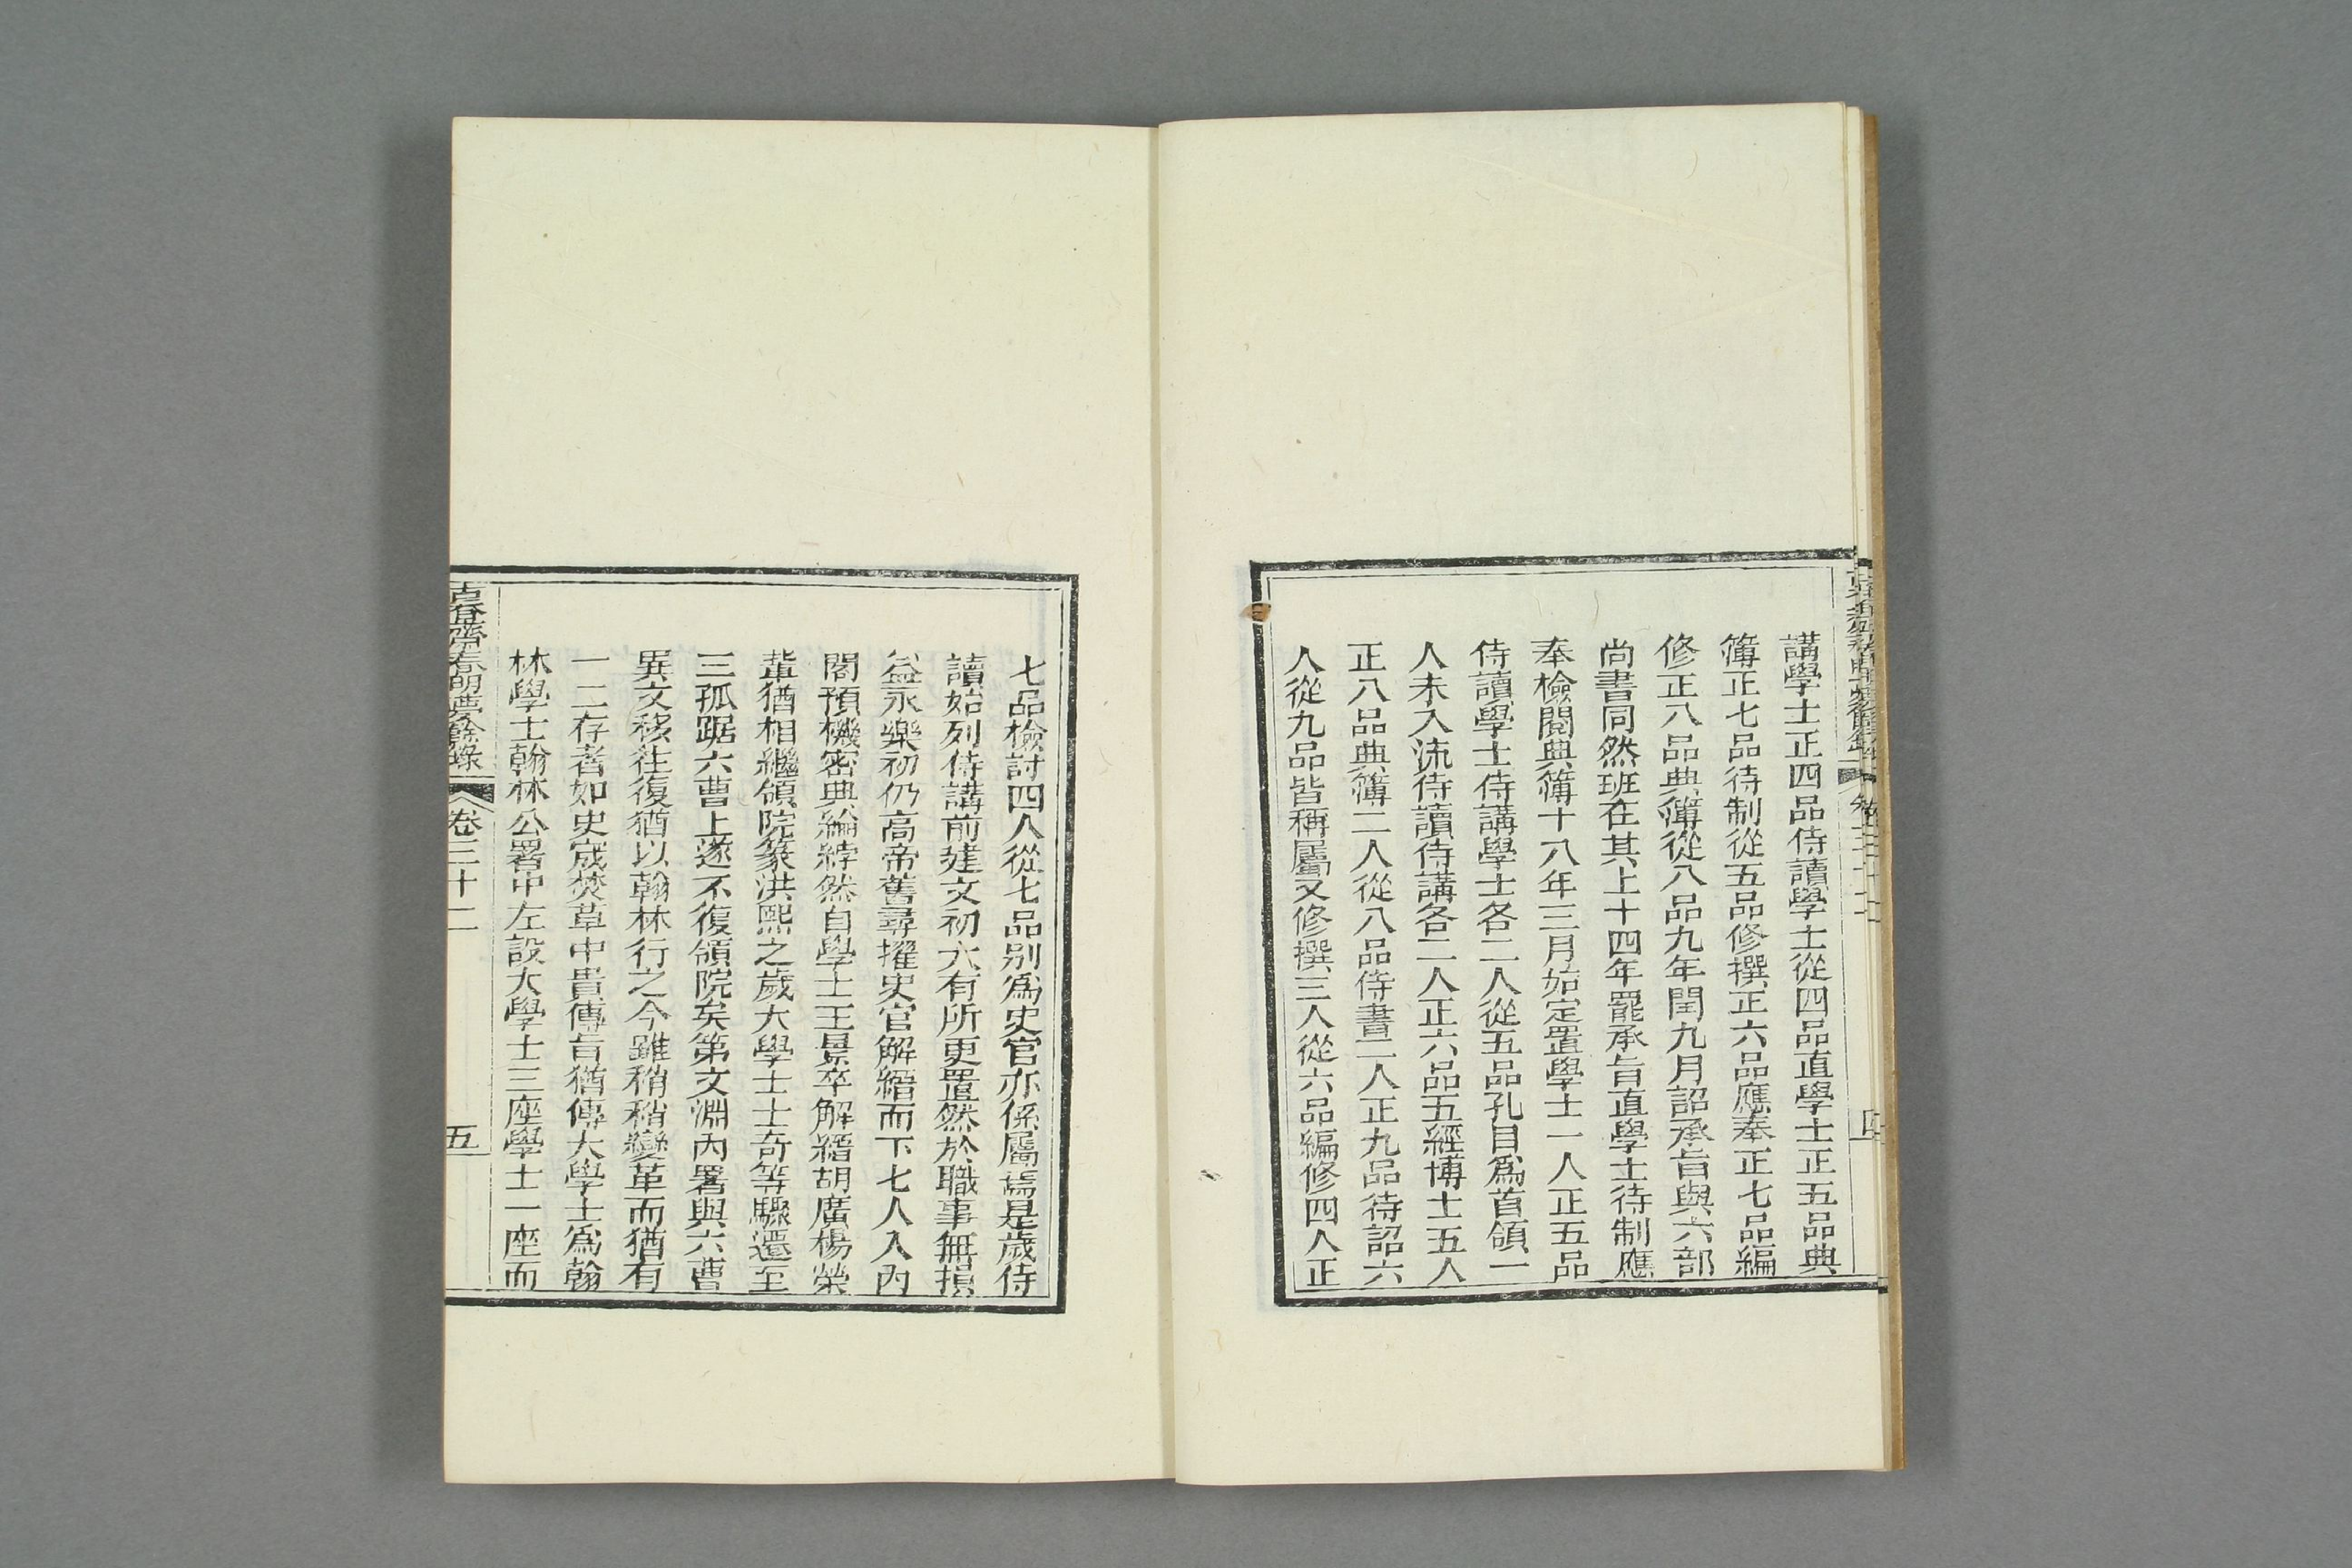 講學士正四品侍讀學士從四品直學士正五品典
簿正七品待制從五品修撰正六品應奉正七品編
修正八品典簿從八品九年閏九月詔承旨與六部
尚書同然班在其上十四年罷承旨直學士待制應
奉檢閱典簿十八年三月始定置學士一人正五品
侍讀學士侍講學士各二人從五品孔目爲首領一
人未入流侍讀侍講各二人正六品五經博士五人
正八品典簿二人從八品侍書二人正九品待詔六
人從九品皆稱屬又修撰三人從六品編修四人正
七品檢討四人從七品別爲史官亦係屬焉是歲侍
讀始列侍講前建文初六有所更置然於職事無損
益永樂初仍高帝舊尋擢史官解縉而下七人入內
閣預機密典綸綍然自學士王景卒解縉胡廣楊榮
輩猶相繼領院篆洪熙之歲大學士士奇等驟遷至
三孤踞六曹上遂不復領院矣第文淵內署與六曹
異文移往復猶以翰林行之今雖稍稍變革而猶有
一二存者如史宬焚草中貴傳旨猶傳大學士爲翰
林學士翰林公署中左設大學士三座學士一座而
古香齋春明夢餘錄
卷三十二
五